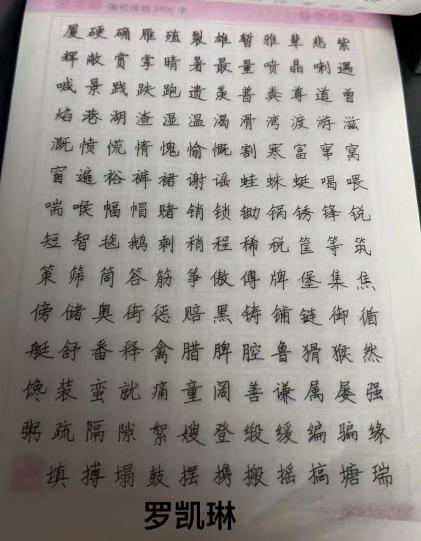 现代汉语3500字
厦硬确雁殖裂雄暂雅辈悲紫
辉敞赏掌晴暑最量喷晶喇遇
喊景践跌跑遗美普粪尊道曾
焰港湖渣湿温渴滑湾渡游滋
溉愤慌惰愧愉慨割寒富窜窝
窗遍裕裤裙谢谣蛙蛛蜓喝喂
喘喉幅帽赌销锁锄锅锈锋锐
短智毯鹅剩稍程稀税筐等筑
策筛筒答筋筝傲傅牌堡集焦
傍储奥街惩赔黑铸铺链御循
艇舒番释禽腊脾腔鲁猾猴然
馋装蛮就痛童阔善谦属屡强
粥疏隔隙絮嫂登缎缓编骗缘
填搏塌鼓摆携搬摇搞塘瑞
罗凯琳